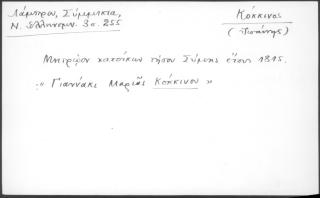 Λάμπρου, Σύμμικτα,
Ν. Ελληνομν. 3 σ. 255
Κόκκινος
(Γιαννης)
Μητρῷον κατοίκων νήσου Σύμης ἔτους 1815.
"Γιαννάκι Μαριᾶς Κόκκινου"